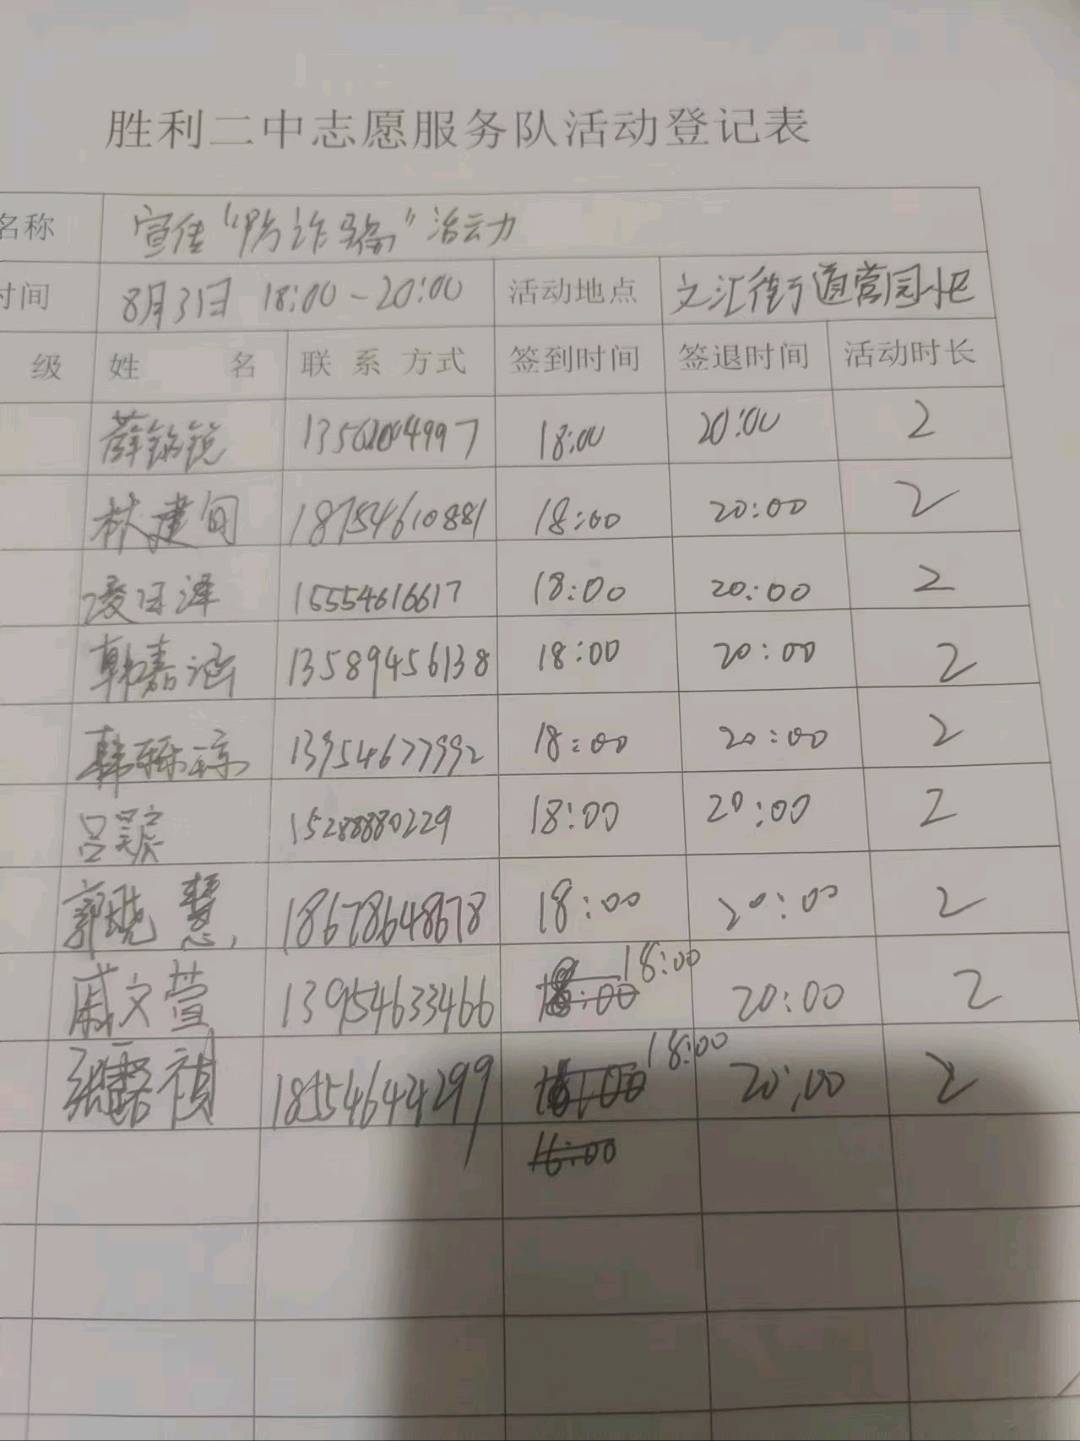 胜利二中志愿服务队活动登记表
名称 宣传“防诈骗”活动
时间 8月31日 18:00-20:00 活动地点 文汇街道营园小区
级 姓名 联系方式 签到时间 签退时间 活动时长
薛铭锐 18:00 20:00 2
林建旬 18754610881 18:00 20:00 2
凌 泽 15554616617 18:00 20:00 2
韩嘉涵 13589456138 18:00 20:00 2
韩 琼 13954677992 18:00 20:00 2
吕 15288880229 18:00 20:00 2
郭晓慧 18678648678 18:00 20:00 2
戚文萱 13954633466 18:00 20:00 2
张 祯 18554644299 18:00 20:00 2
16:00